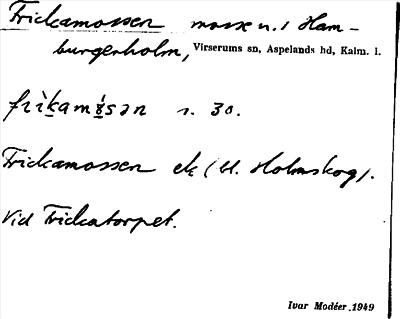 Frickamossen mosse n. i Ham-
burgerholm, Virserums sn, Aspelands hd, Kalm. l.
s. 30.
Frickamossen ek (bl. Holmskog).
Vid Frickatorpet.
Ivar Modéer.1949